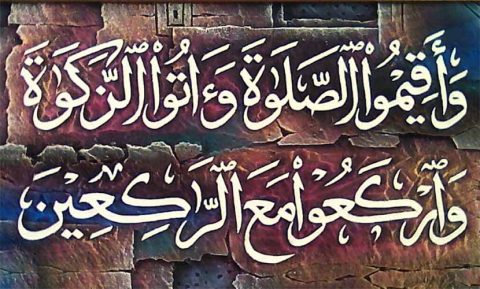 وَأَقِيمُوا۟ ٱلصَّلَوٰةَ وَءَاتُوا۟ ٱلزَّكَوٰةَ
وَٱرْكَعُوا۟ مَعَ ٱلرَّٰكِعِينَ